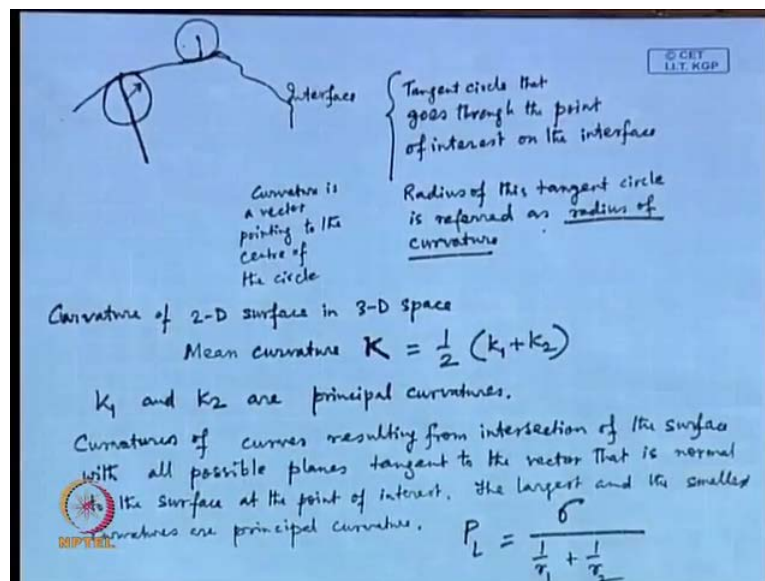 © CET
I.I.T. KGP
Interface
Tangent circle that
goes through the point
of interest on the interface
Curvature is
a vector
pointing to the
centre of
the circle
Radius of this tangent circle
is referred as radius of
curvature
Curvature of 2-D surface in 3-D space
Mean curvature K = 1/2 (k1 + k2)
K1 and K2 are principal curvatures.
Curvatures of curves resulting from intersection of the surface
with all possible planes tangent to the vector that is normal
to the surface at the point of interest. The largest and the smallest
curvatures are principal curvature.
P_L = σ / (1/r1 + 1/r2)
NPTEL